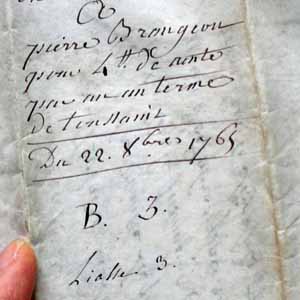 A
pierre Brongeon
pour 4tt de rente
par an au terme
de toussaint
Du 22. Xbre 1765
B. 3.
Liasse 3.